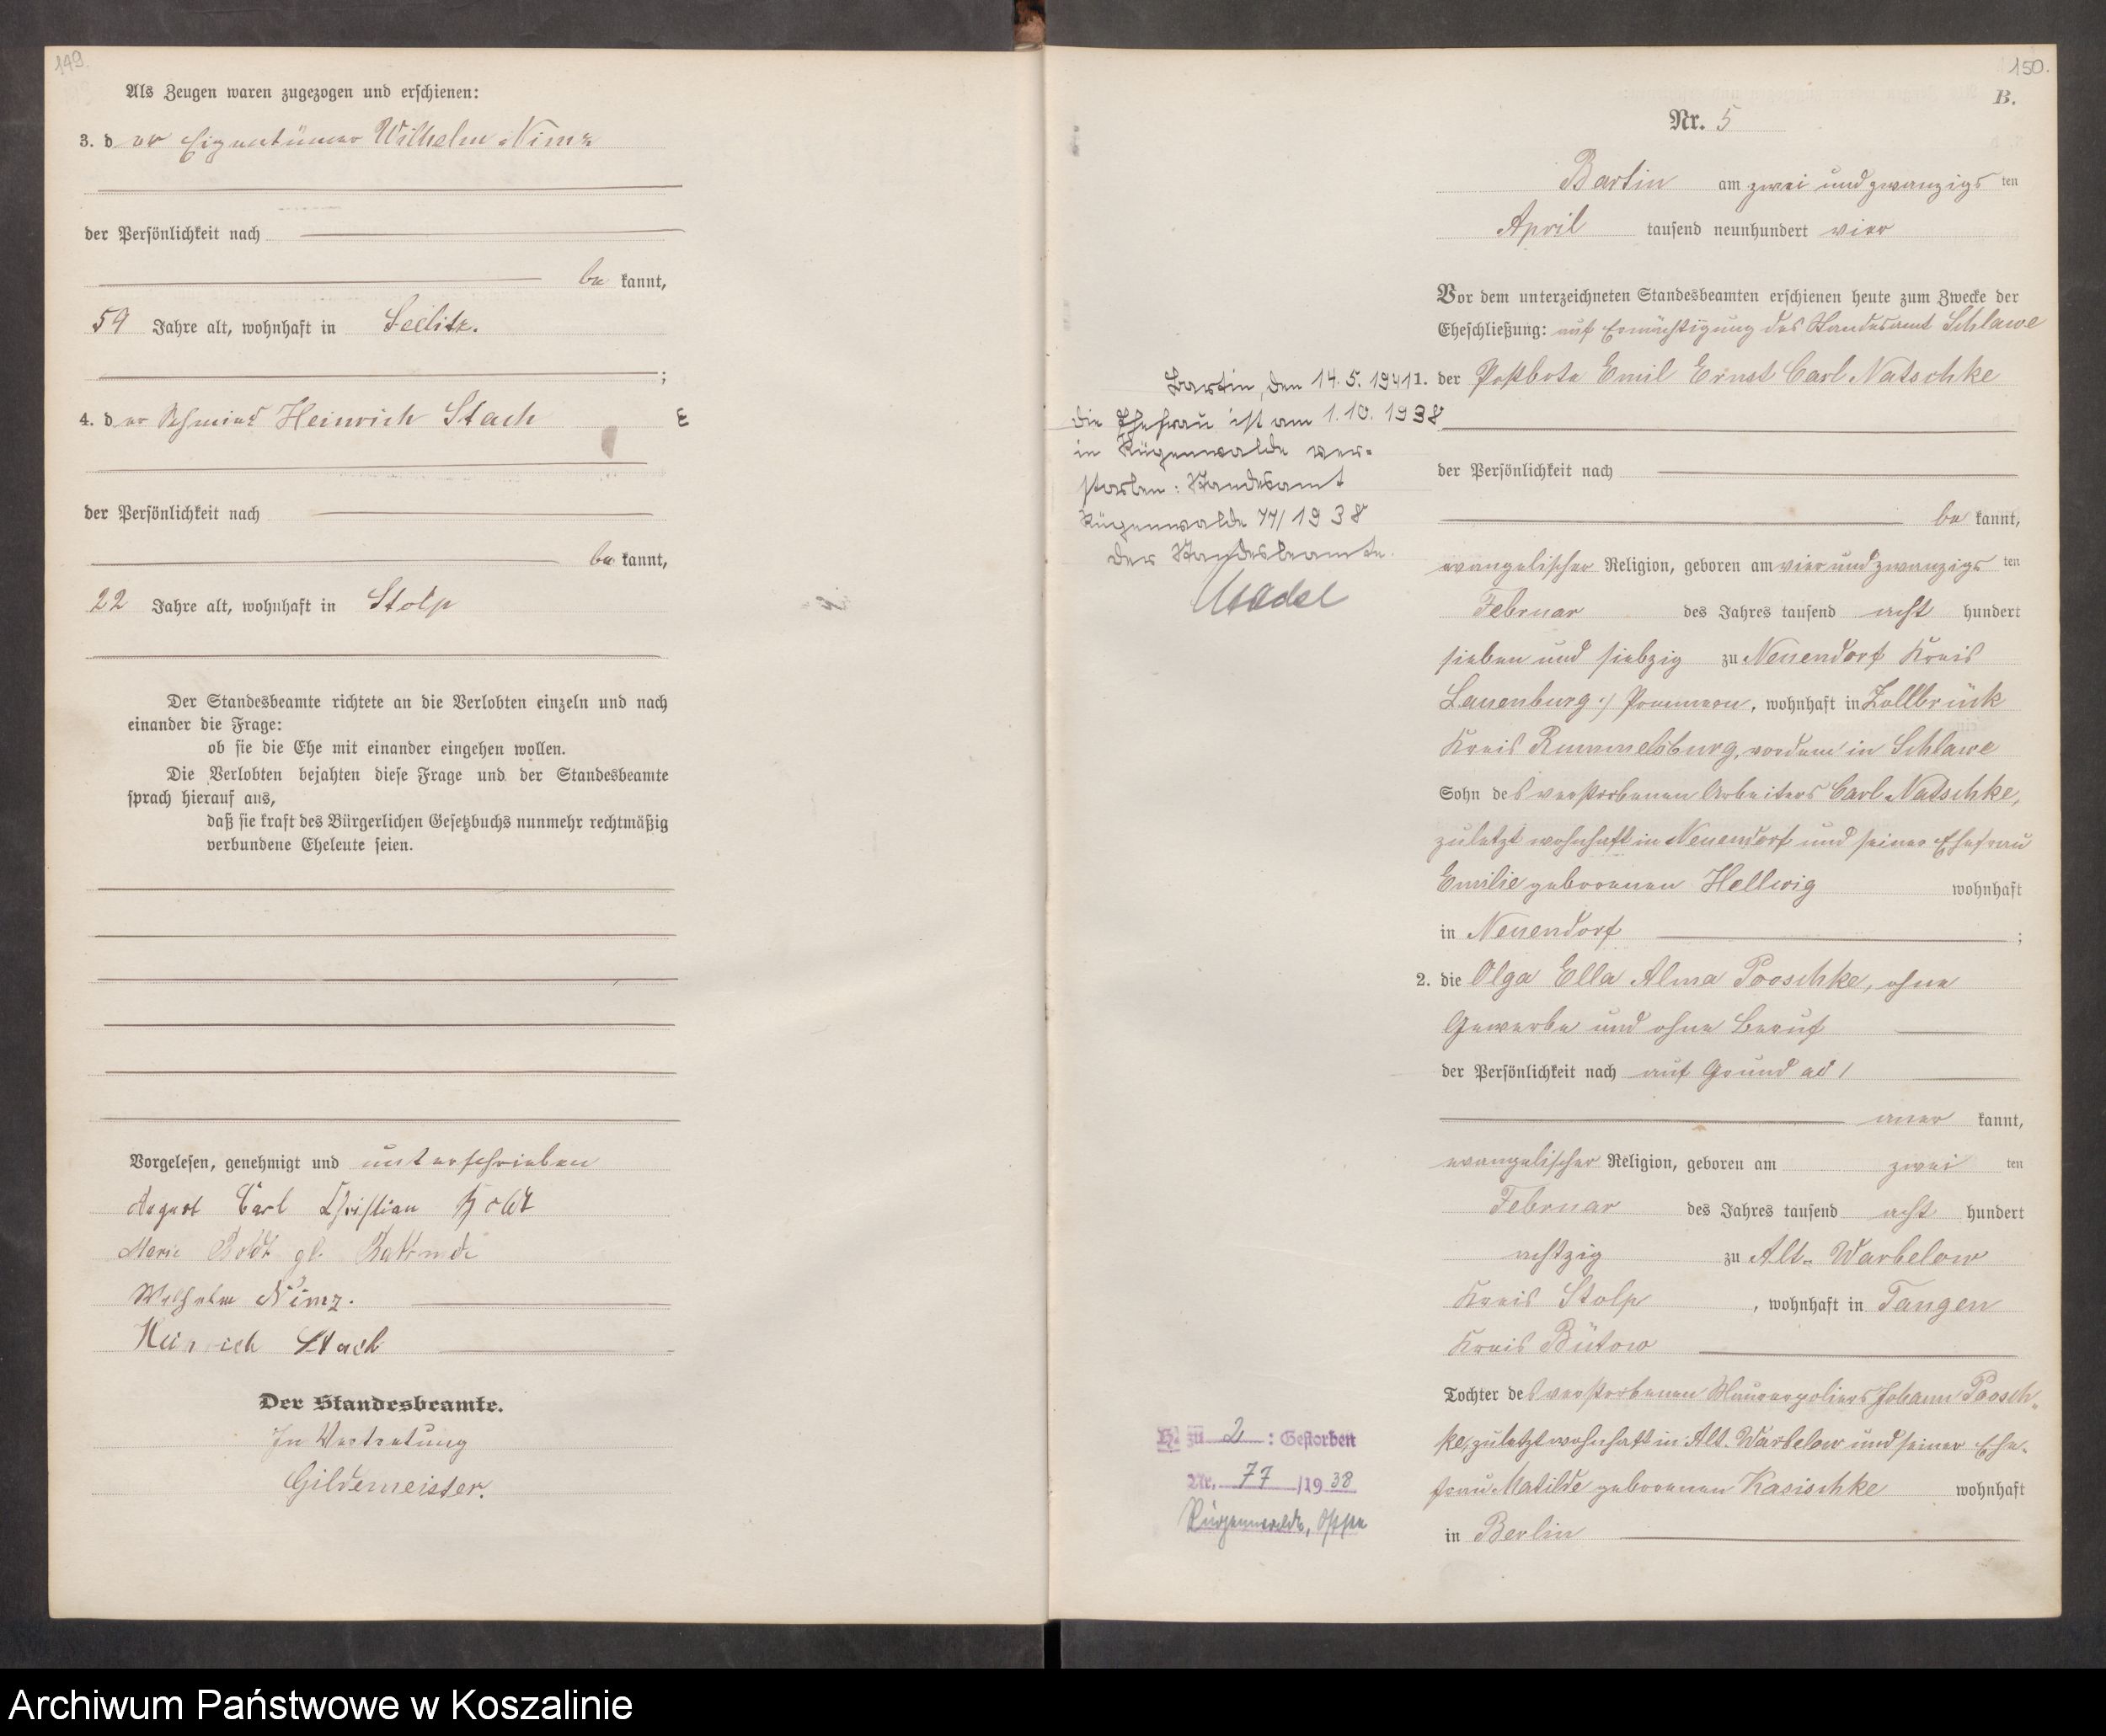 149.
Als Zeugen waren zugezogen und erschienen:
3. der Eigentümer Wilhelm Nimz
der Persönlichkeit nach
be kannt,
59 Jahre alt, wohnhaft in Seelitz.
;
4. der Schmied Heinrich Stach
der Persönlichkeit nach
be kannt,
22 Jahre alt, wohnhaft in Stolp
Der Standesbeamte richtete an die Verlobten einzeln und nach
einander die Frage:
ob sie die Ehe mit einander eingehen wollen.
Die Verlobten bejahten diese Frage und der Standesbeamte
sprach hierauf aus,
daß sie kraft des Bürgerlichen Gesetzbuchs nunmehr rechtmäßig
verbundene Eheleute seien.
Vorgelesen, genehmigt und unterschrieben
August Carl Christian
Marie Boldt
Wilhelm Nimz.
Heinrich Stach
Der Standesbeamte.
In Vertretung
Gildemeister.
E
150.
B.
Nr. 5
Bartin am zwei und zwanzigs ten
April tausend neunhundert vier
Vor dem unterzeichneten Standesbeamten erschienen heute zum Zwecke der
Eheschließung: auf Ermächtigung des Standesamt Schlawe
1. der Postbote Emil Ernst Carl Natschke
der Persönlichkeit nach
be kannt,
evangelischer Religion, geboren am vier und zwanzigs ten
Februar des Jahres tausend acht hundert
sieben und siebzig zu Neuendorf Kreis
Lauenburg /Pommern, wohnhaft in Zollbrück
Kreis Rummelsburg, vordem in Schlawe
Sohn des verstorbenen Arbeiters Carl Natschke,
zuletzt wohnhaft in Neuendorf und seiner Ehefrau
Emilie geborenen Hellwig wohnhaft
in Neuendorf ;
2. die Olga Ella Alma Pooschke, ohne
Gewerbe und ohne Beruf
der Persönlichkeit nach auf Grund ad 1
aner kannt,
evangelischer Religion, geboren am zwei ten
Februar des Jahres tausend acht hundert
achtzig zu Alt-Warbelow
Kreis Stolp, wohnhaft in Tangen
Kreis Bütow
Tochter des verstorbenen Maurerpoliers Johann Poosch-
ke, zuletzt wohnhaft in Alt-Warbelow und seiner Ehe-
frau Matilde geborenen Kasischke wohnhaft
in Berlin
Bartin, den 14. 5. 1941
Die Ehefrau ist am 1. 10. 1938
in Rügenwalde ver-
storben: Standesamt
Rügenwalde 77/1938
Der Standesbeamte.
H. zu 2 : Gestorben
Nr. 77 /19 38
Rügenwalde,
Archiwum Państwowe w Koszalinie